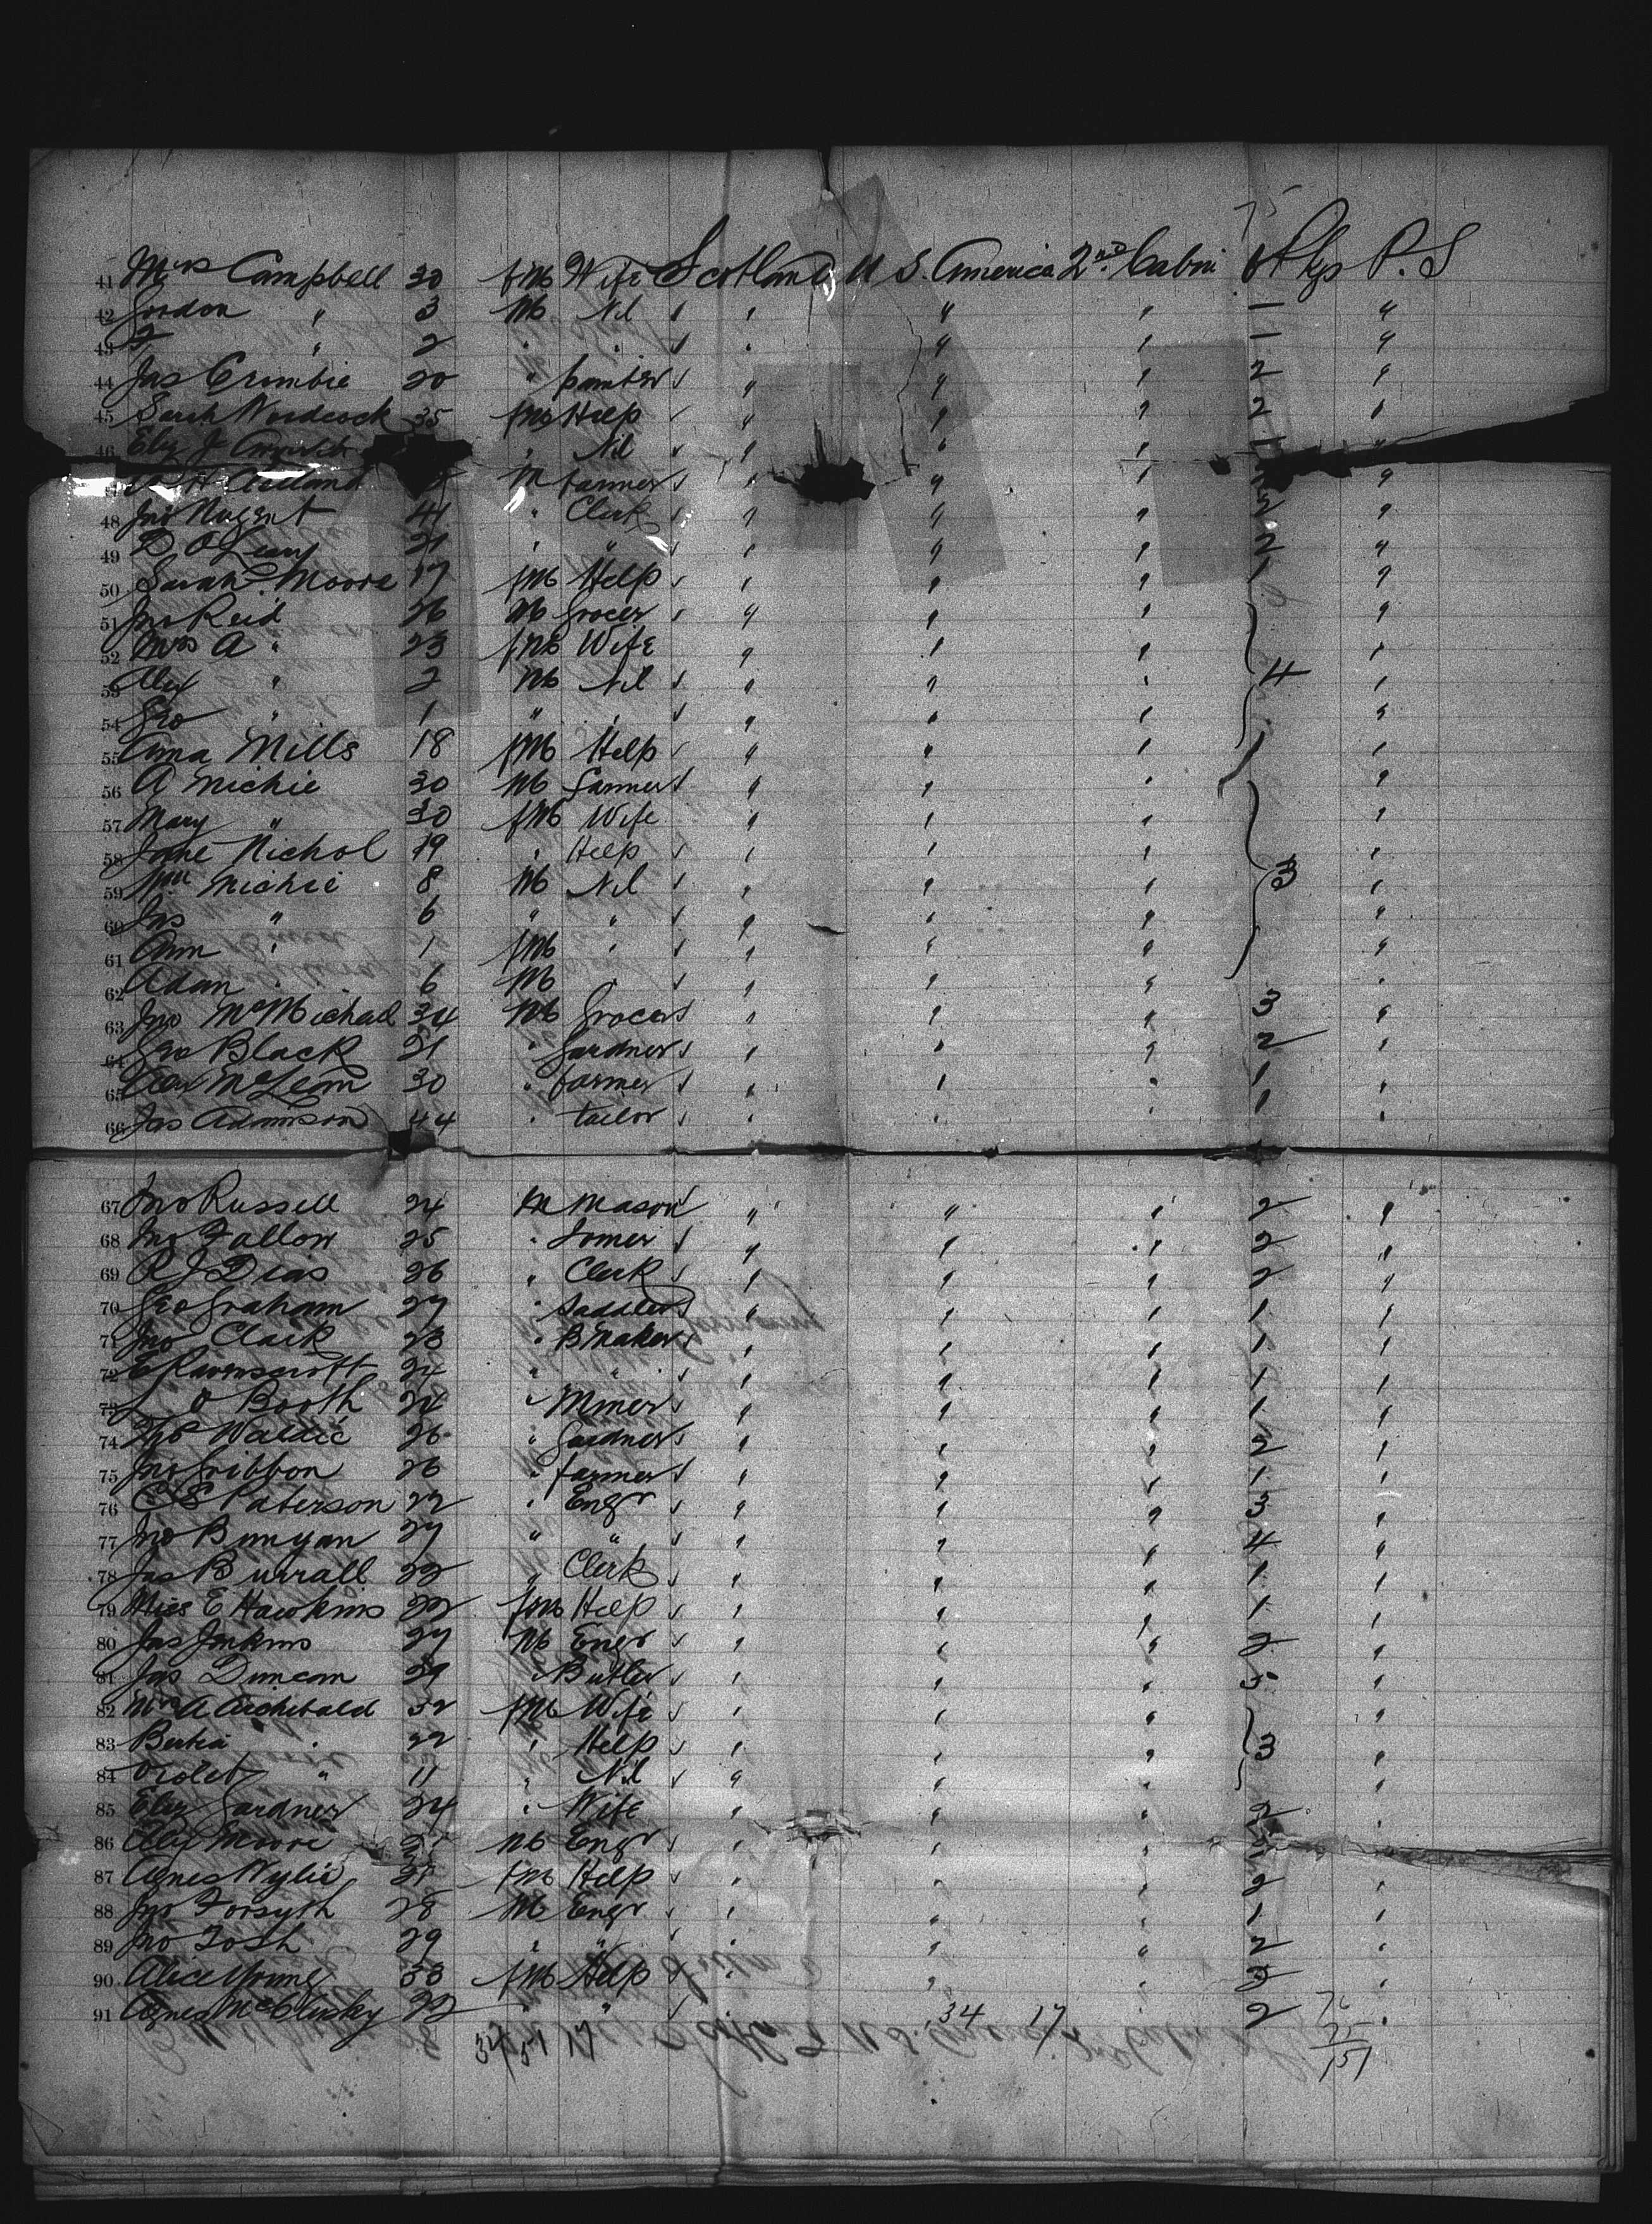 41 Mrs Campbell 30 fM Wife Scotland U S. America 2nd Cabin pkgs P. S
42 Gordon " 3 M Nil " " " " 1 "
43 " 2 " " " " " " 1 "
44 Jas Crombie 20 " painter " " " 2 "
45 Sarah Woodcock 35 fM Help " " " 2 "
46 Eliz J " Nil " " " 1 "
M farmer " " " "
48 Jno Nugent 41 " Clerk " " " 2 "
49 D O'Leary 21 " " " " " 2 "
50 Sarah Moore 17 fM Help " " " 1 "
51 Jno Reid 26 M Grocer " " " "
52 Mrs A " 23 fM Wife " " " "
53 Alex " 2 M Nil " " " 4 "
54 Geo " 1 " " " " " "
55 Anna Mills 18 fM Help " " " 1 "
56 A Michie 30 M farmer " " " "
57 Mary " 30 fM Wife " " " "
58 Jane Nichol 19 " Help " " " "
59 Wm Michie 8 M Nil " " " 3 "
60 Jas " 6 " " " " " "
61 Ann " 1 fM " " " " "
62 Adam " 6 M " " " " "
63 Jno McMichael 34 M Grocer " " " 3 "
64 Geo Black 21 " Gardner " " " 2 "
65 Alex McLean 30 " farmer " " " 1 "
66 Jas Adamson 44 " tailor " " " 1 "
67 Jno Russell 24 M Mason " " " 2 "
68 Jno Fallow 25 " Joiner " " " 2 "
69 R J Dias 26 " Clerk " " " 2 "
70 Geo Graham 27 " Saddler " " " 1 "
71 Jno Clark 23 " B Maker " " " 1 "
72 E Ravenscroft 24 " " " " " 1 "
73 Booth 24 " Miner " " " 1 "
74 Waldie 26 " Gardner " " " 2 "
75 Jno Gribbon 26 " farmer " " " 1 "
76 Paterson 22 " Engr " " " 3 "
77 Jno Bunyan 27 " " " " " 4 "
78 Jas Burrall 22 " Clerk " " " 1 "
79 Miss E Hawkins 22 fM Help " " " 1 "
80 Jas Jenkins 27 M Engr " " " 2 "
81 Jas Duncan 29 " Butler " " " 5 "
82 Mrs A Archibald 52 fM Wife " " " "
83 Bertia " 22 " Help " " " 3 "
84 Violet " 11 " Nil " " " "
85 Eliz Gardner 24 " Wife " " " 2 "
86 Alex Moore M Engr " " " "
87 Agnes Wylie 21 fM Help " " " 2 "
88 Jno Forsyth 28 M Engr " " " 1 "
89 Jno Tosh 29 " " " " " 2 "
90 Alice Young 33 fM Help " " " 2 "
91 Agnes McClusky 22 " " " 34 17 " 2 76 "
34/51 17 75
151